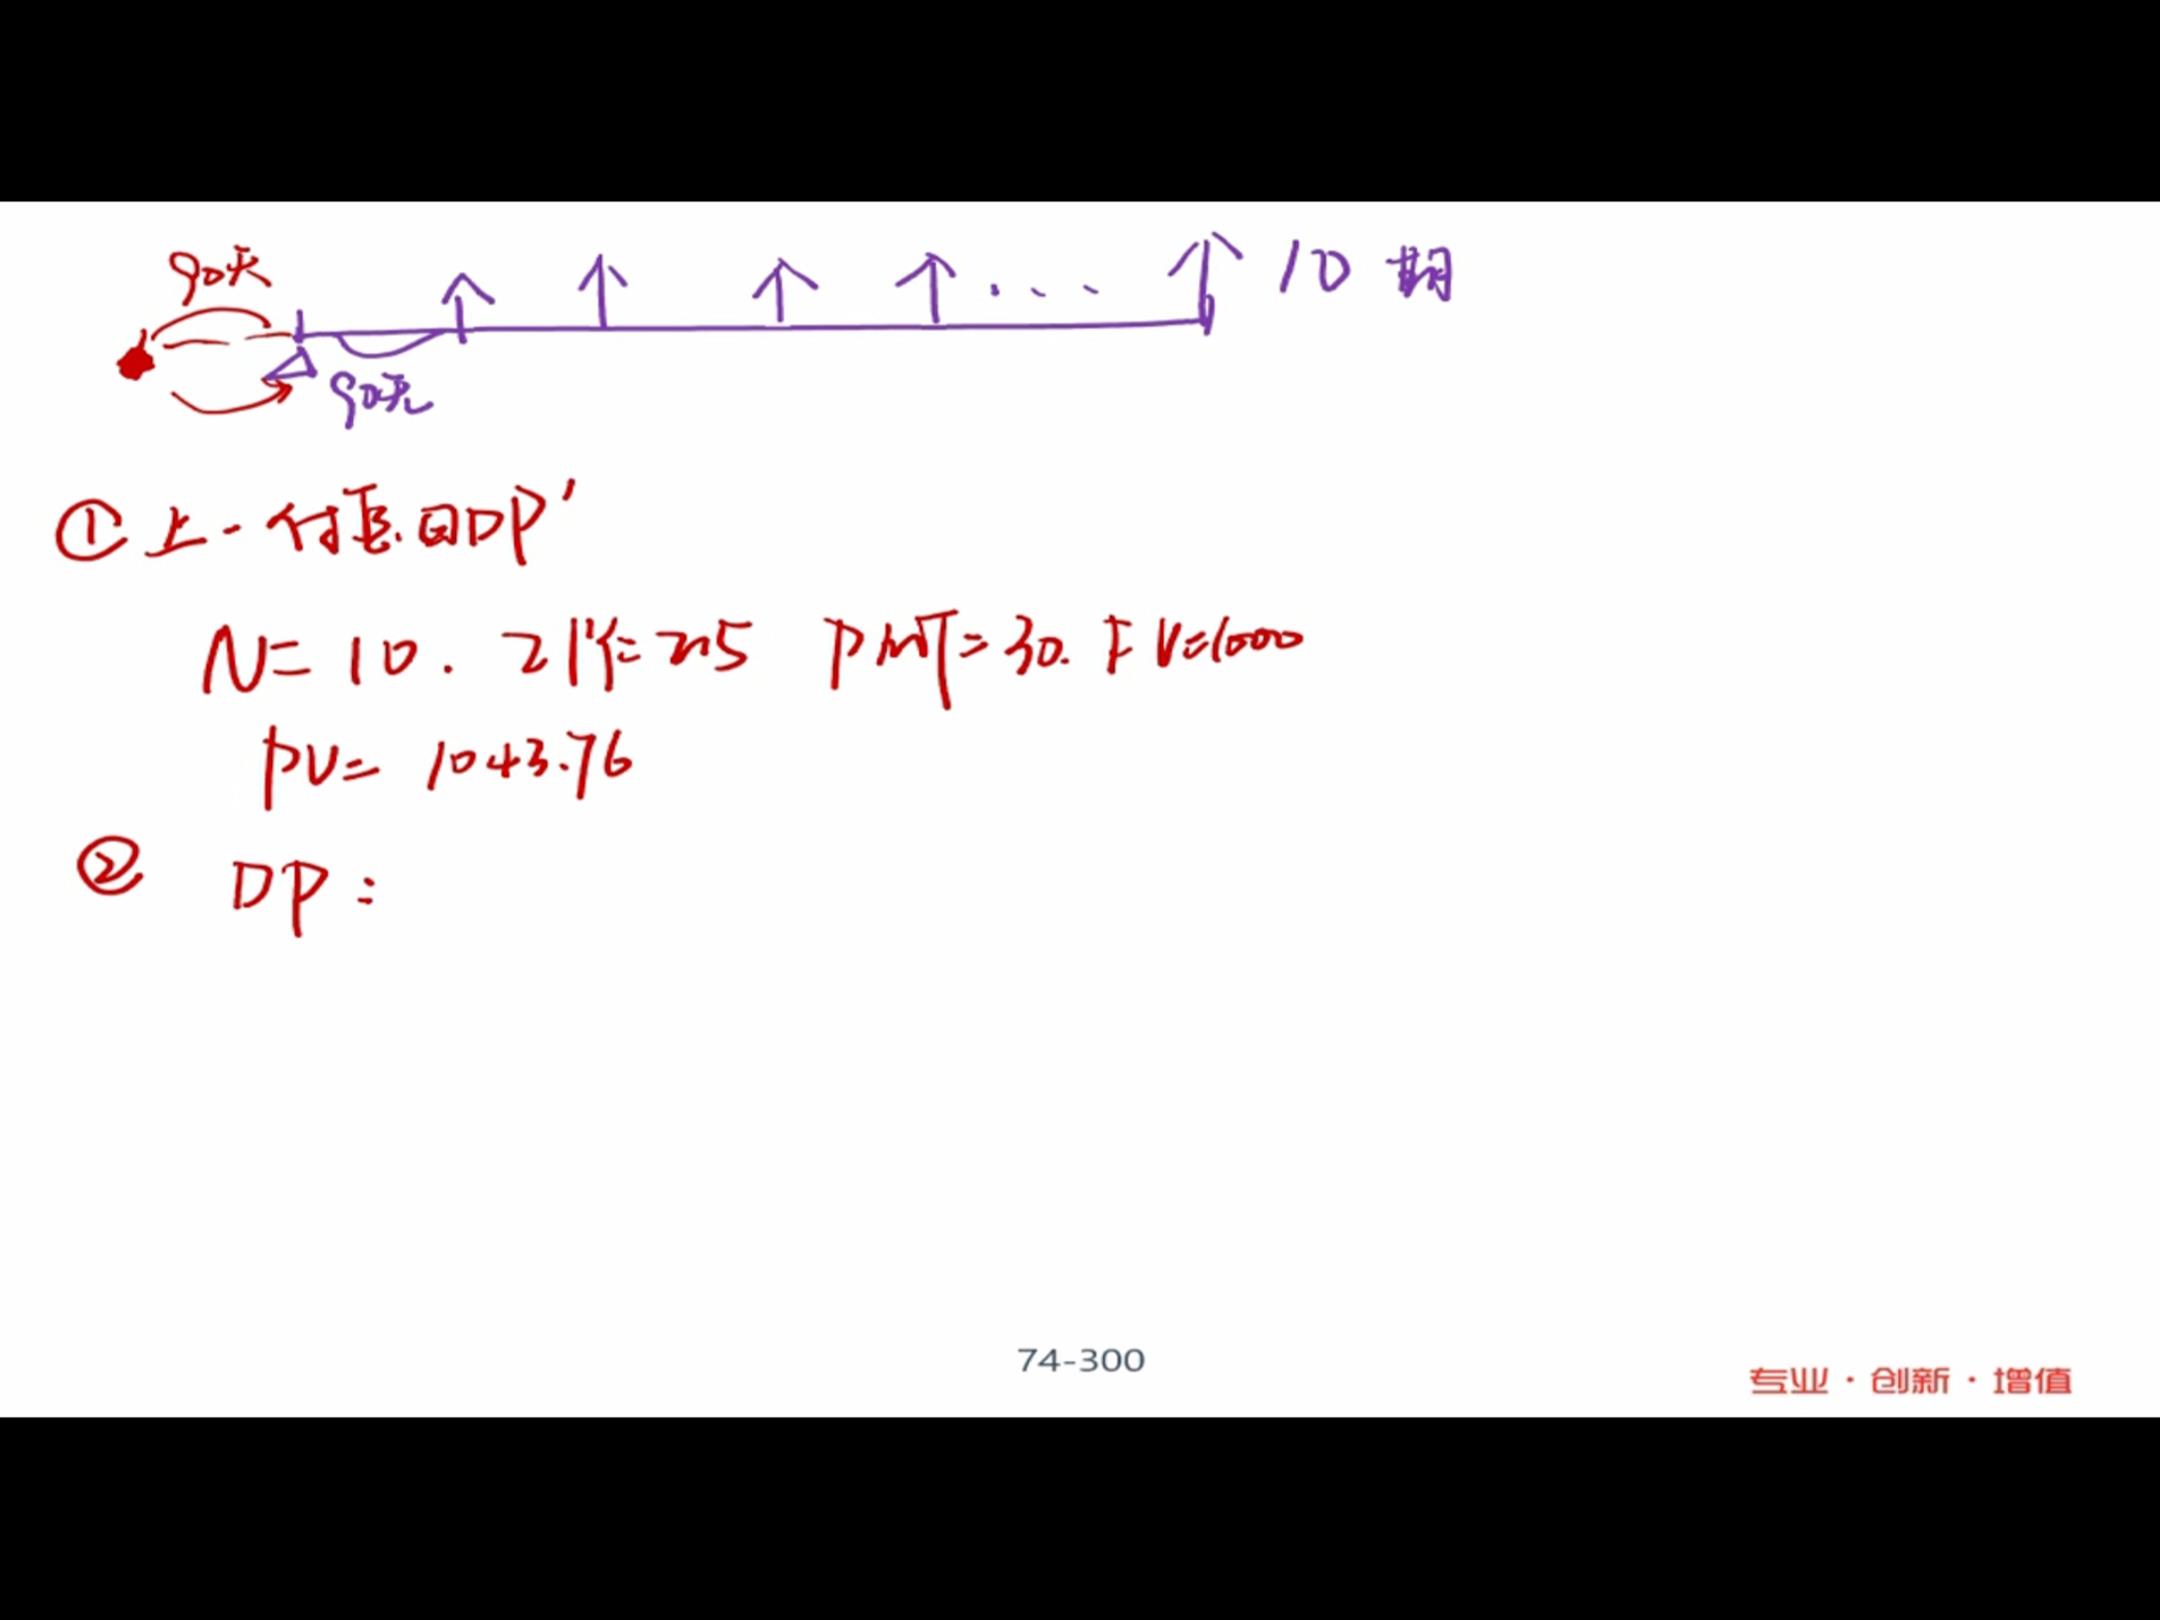 90天
10期
90天
① 上一付息日DP'
N=10. I/Y=2.5 PMT=30. FV=1000
PV=1043.76
② DP=
74-300
专业·创新·增值